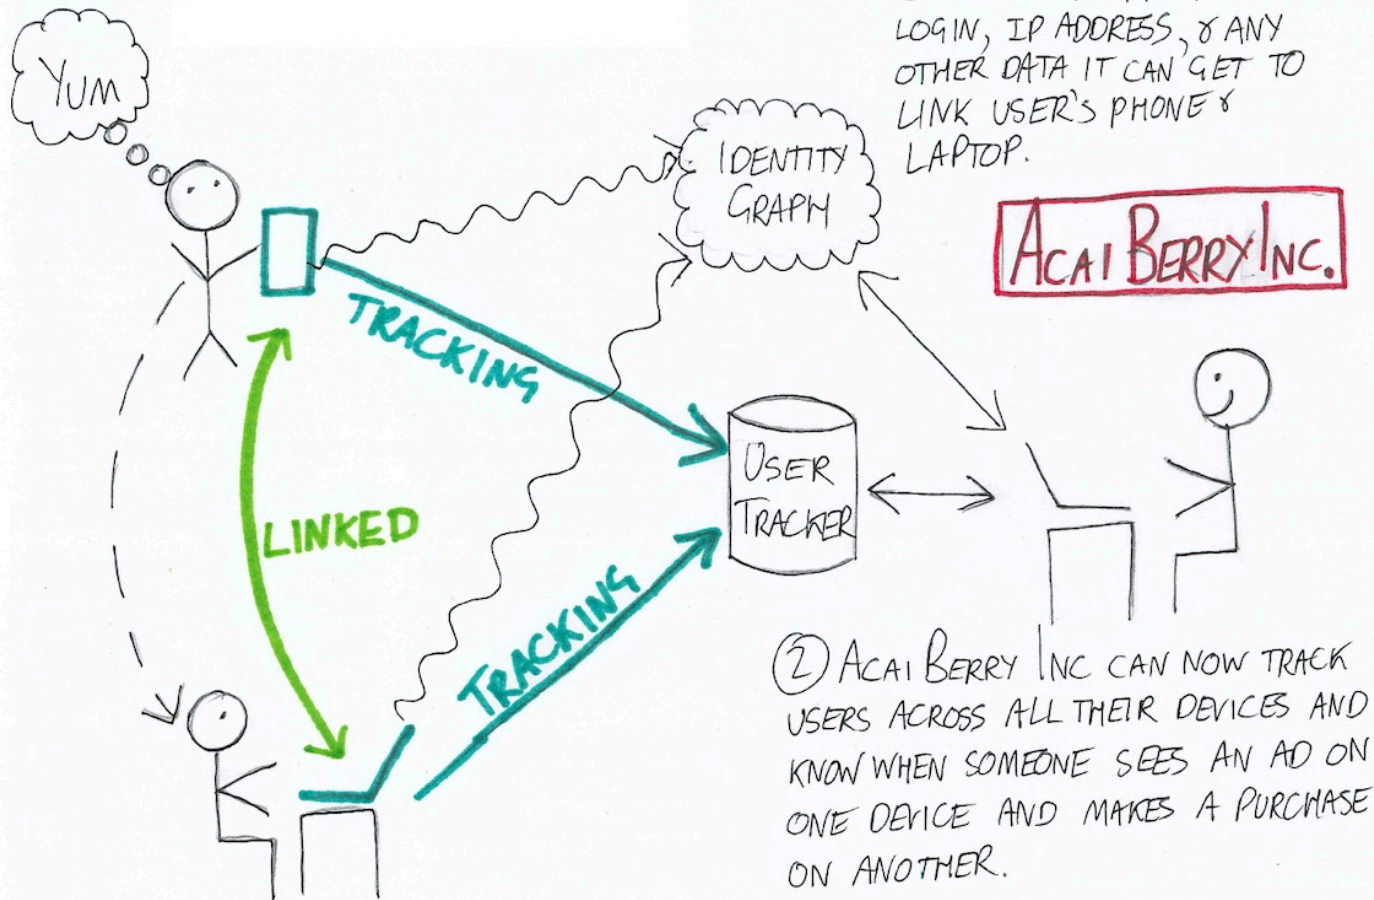 LOGIN, IP ADDRESS, & ANY
OTHER DATA IT CAN GET TO
LINK USER'S PHONE &
LAPTOP.
YUM
IDENTITY
GRAPH
ACAI BERRY INC.
TRACKING
LINKED
USER
TRACKER
TRACKING
② ACAI BERRY INC CAN NOW TRACK
USERS ACROSS ALL THEIR DEVICES AND
KNOW WHEN SOMEONE SEES AN AD ON
ONE DEVICE AND MAKES A PURCHASE
ON ANOTHER.